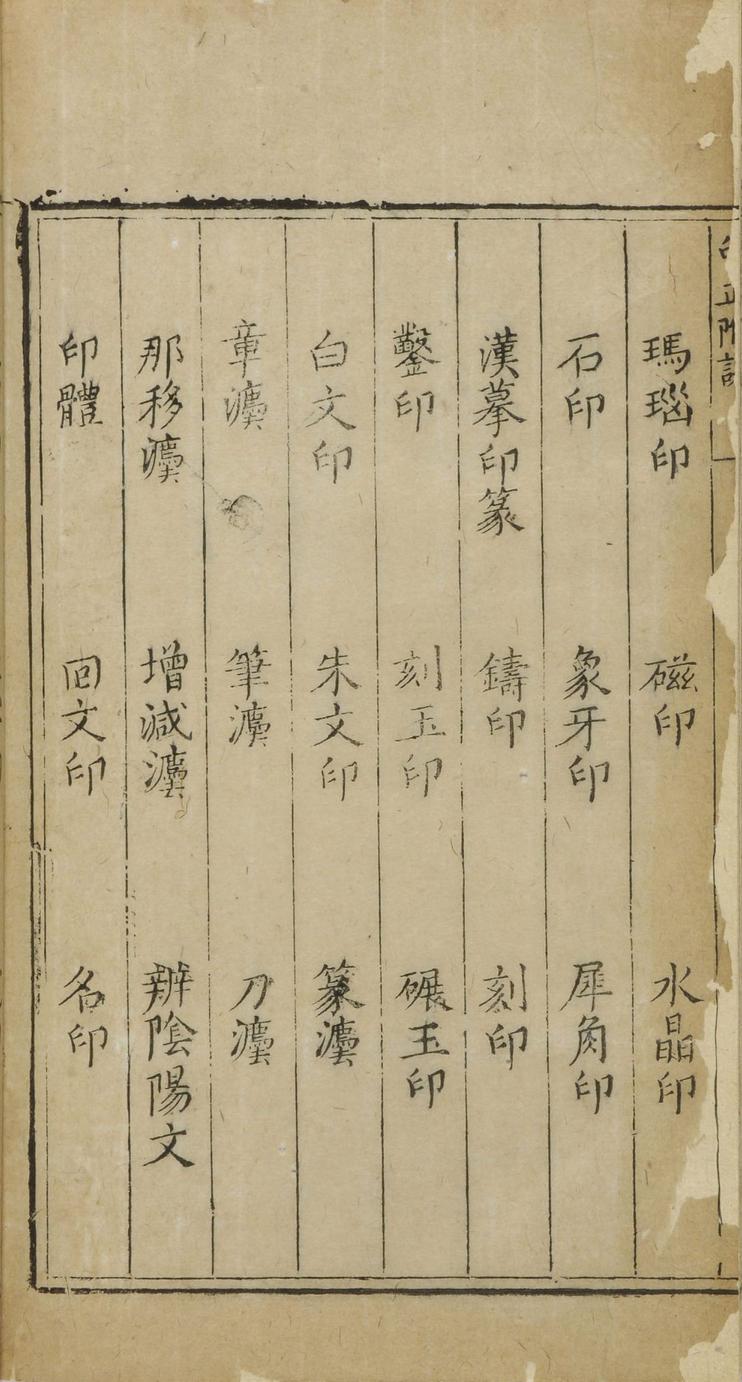 印正附說 一
瑪瑙印 磁印 水晶印
石印 象牙印 犀角印
漢摹印篆 鑄印 刻印
鑿印 刻玉印 碾玉印
白文印 朱文印 篆灋
章灋 筆灋 刀灋
那移灋 增減灋 辨隂陽文
印體 回文印 名印